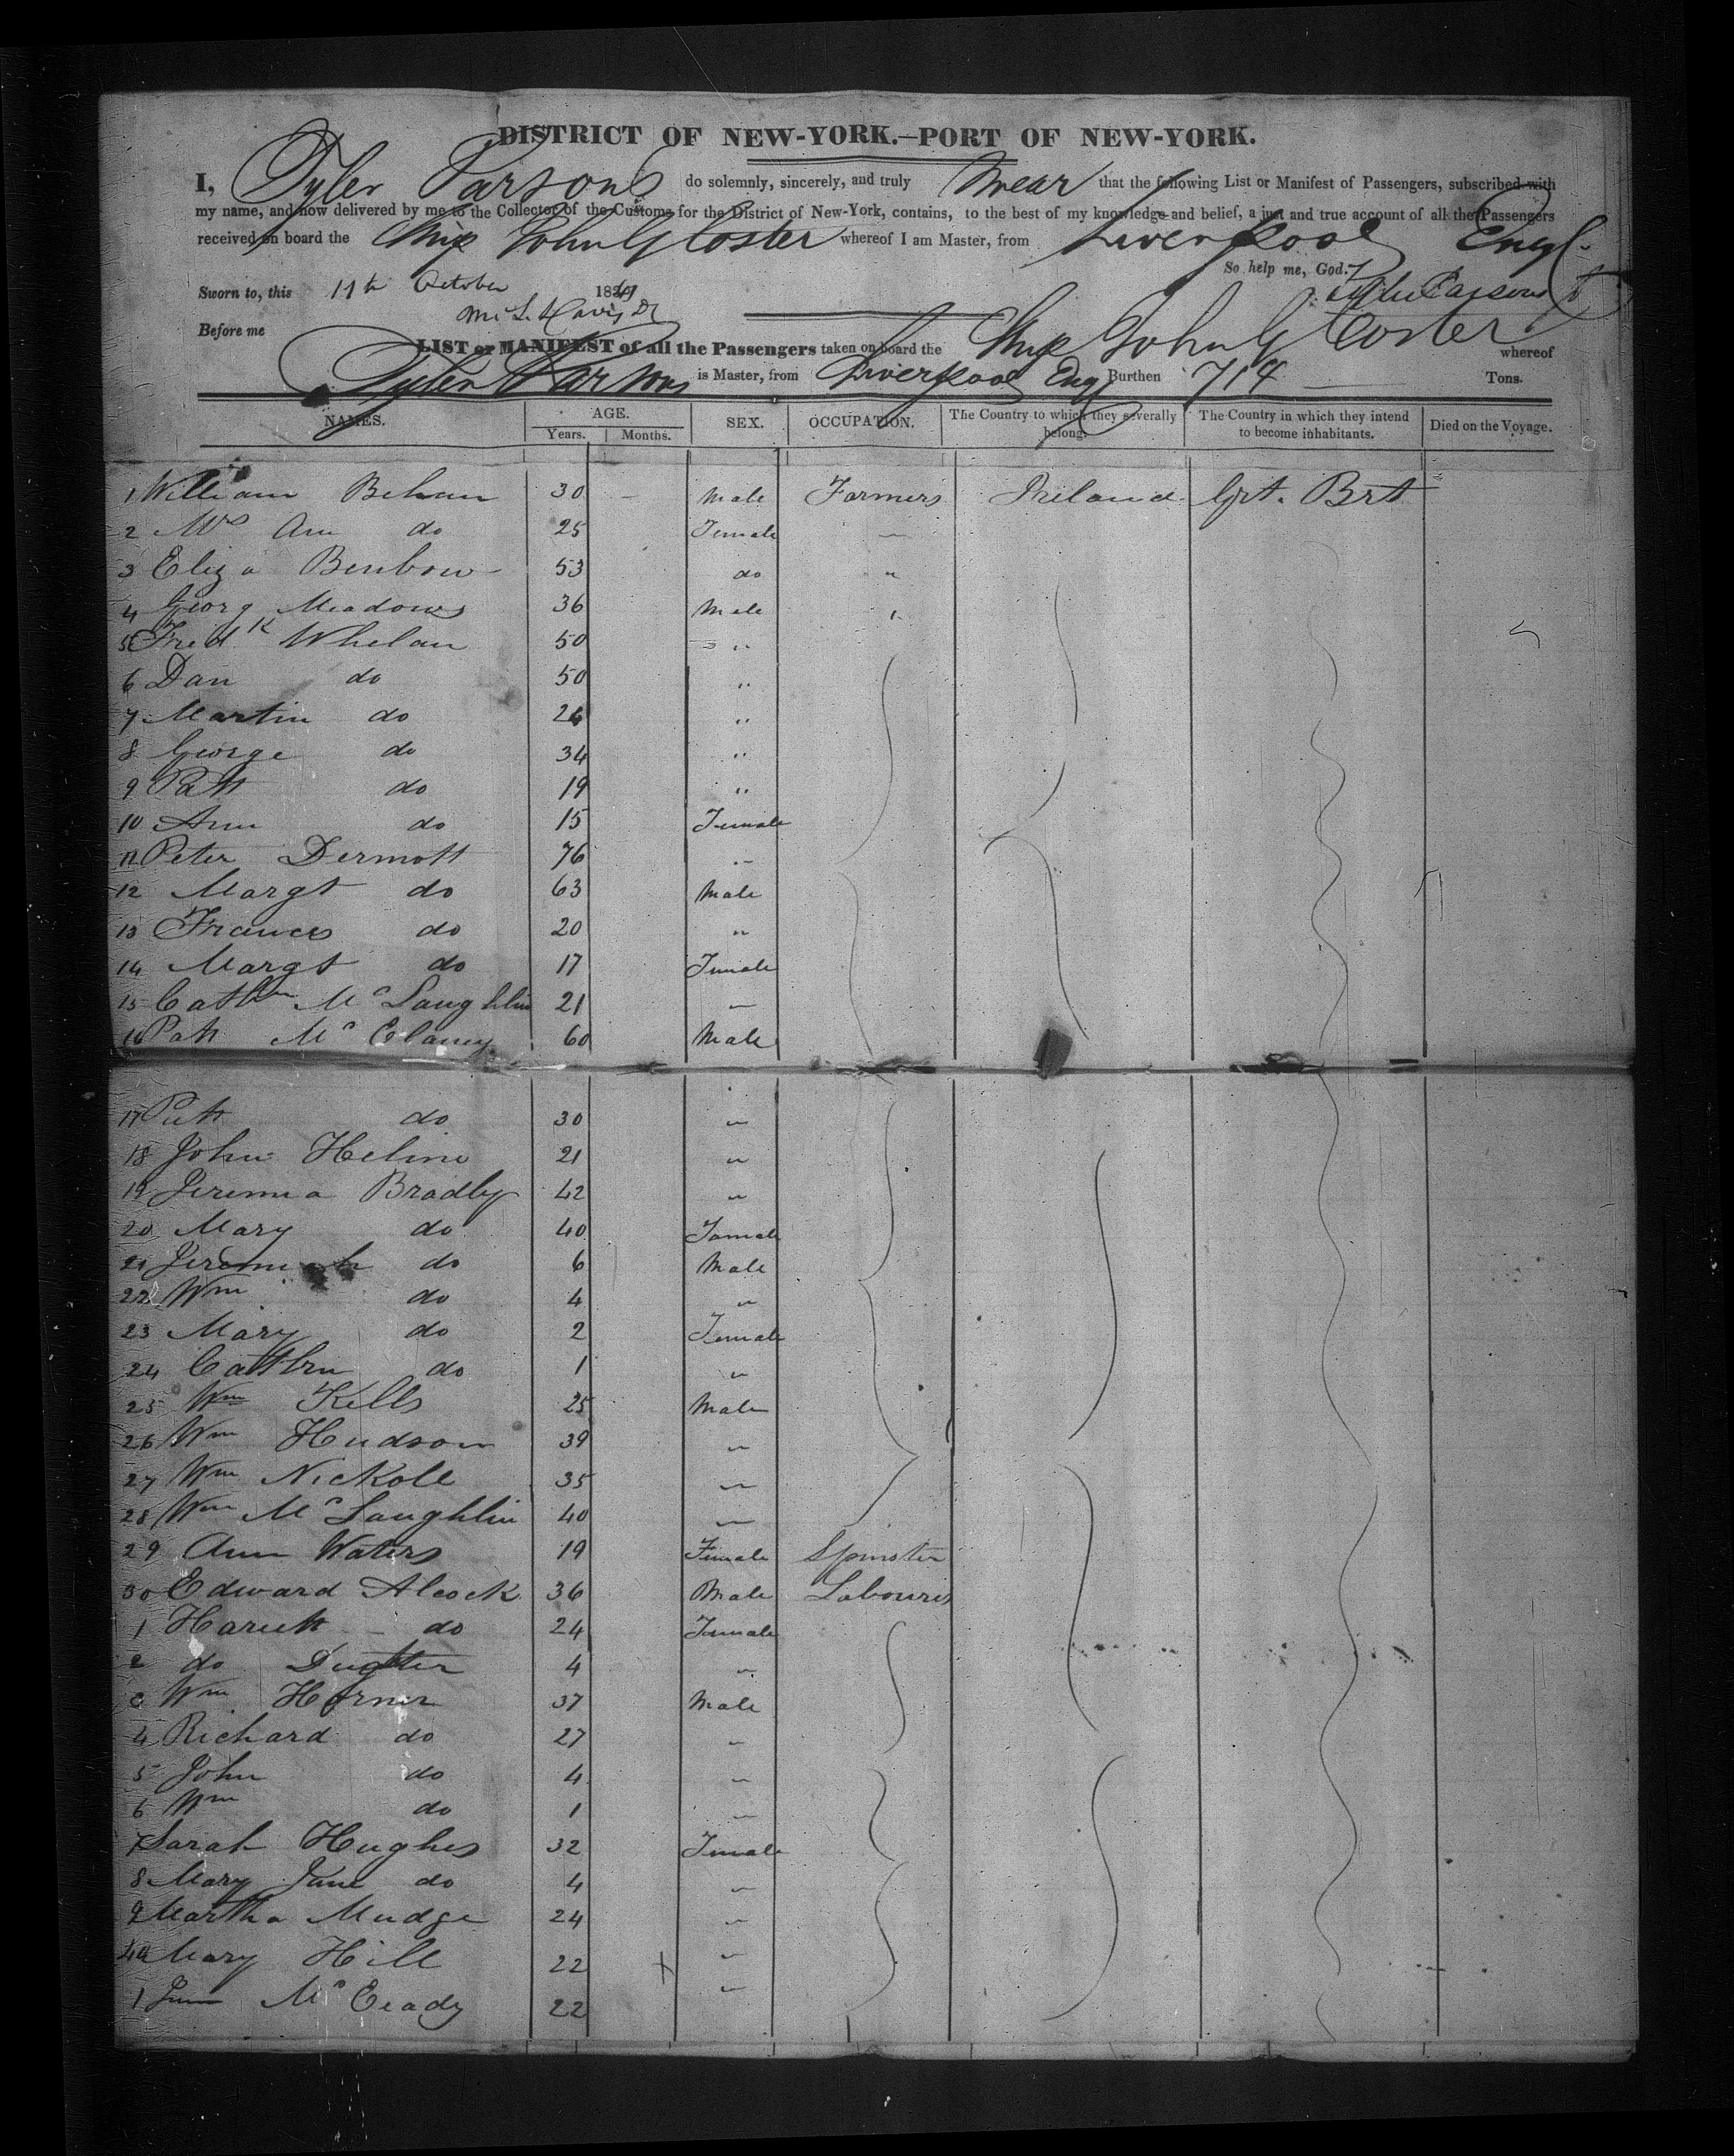 DISTRICT OF NEW-YORK.—PORT OF NEW-YORK.
I, Tyler Parsons do solemnly, sincerely, and truly swear that the following List or Manifest of Passengers, subscribed with
my name, and now delivered by me to the Collector of the Customs for the District of New-York, contains, to the best of my knowledge and belief, a just and true account of all the Passengers
received on board the Ship John G Coster whereof I am Master, from Liverpool Engl.
So help me, God.
Sworn to, this 11th October 184 Tyler Parsons
Before me
LIST or MANIFEST of all the Passengers taken on board the Ship John G Coster whereof
Tyler Parsons is Master, from Liverpool Eng Burthen 714 Tons.
NAMES. AGE. SEX. OCCUPATION. The Country to which they severally belong. The Country in which they intend to become inhabitants. Died on the Voyage.
Years. Months.
1 William Behan 30 – Male Farmers Ireland Grt. Brt
2 Mrs Ann do 25 Female —
3 Eliza Benbow 53 do "
4 Georg Meadows 36 Male "
5 Fredk Whelan 50 "
6 Dan do 50 "
7 Martin do 26 "
8 George do 34 "
9 Patt do 19 "
10 Ann do 15 Female
11 Peter Dermott 76 "
12 Margt do 63 Male
13 Frances do 20 "
14 Margt do 17 Female
15 Cathn McLaughlin 21 —
16 Patt Mc 60 Male
17 Patt do 30 "
18 John Heline 21 "
19 Jeremia Bradly 42 "
20 Mary do 40 Female
21 Jeremiah do 6 Male
22 Wm do 4 "
23 Mary do 2 Female
24 Cathrn do 1 "
25 Wm Kells 25 Male
26 Wm Hudson 39 "
27 Wm Nickole 35 "
28 Wm McLaughlin 40 "
29 Ann Waters 19 Female Spinster
30 Edward Alcock 36 Male Labourer
1 Hariett do 24 Female
2 do Dugter 4 "
3 Wm Horner 37 Male
4 Richard do 27 "
5 John do 4 "
6 Wm do 1 "
7 Sarah Hughes 32 Female
8 Mary Jane do 4 "
9 Martha Mudge 24 "
40 Mary Hill 22 "
1 McCeady 22 "